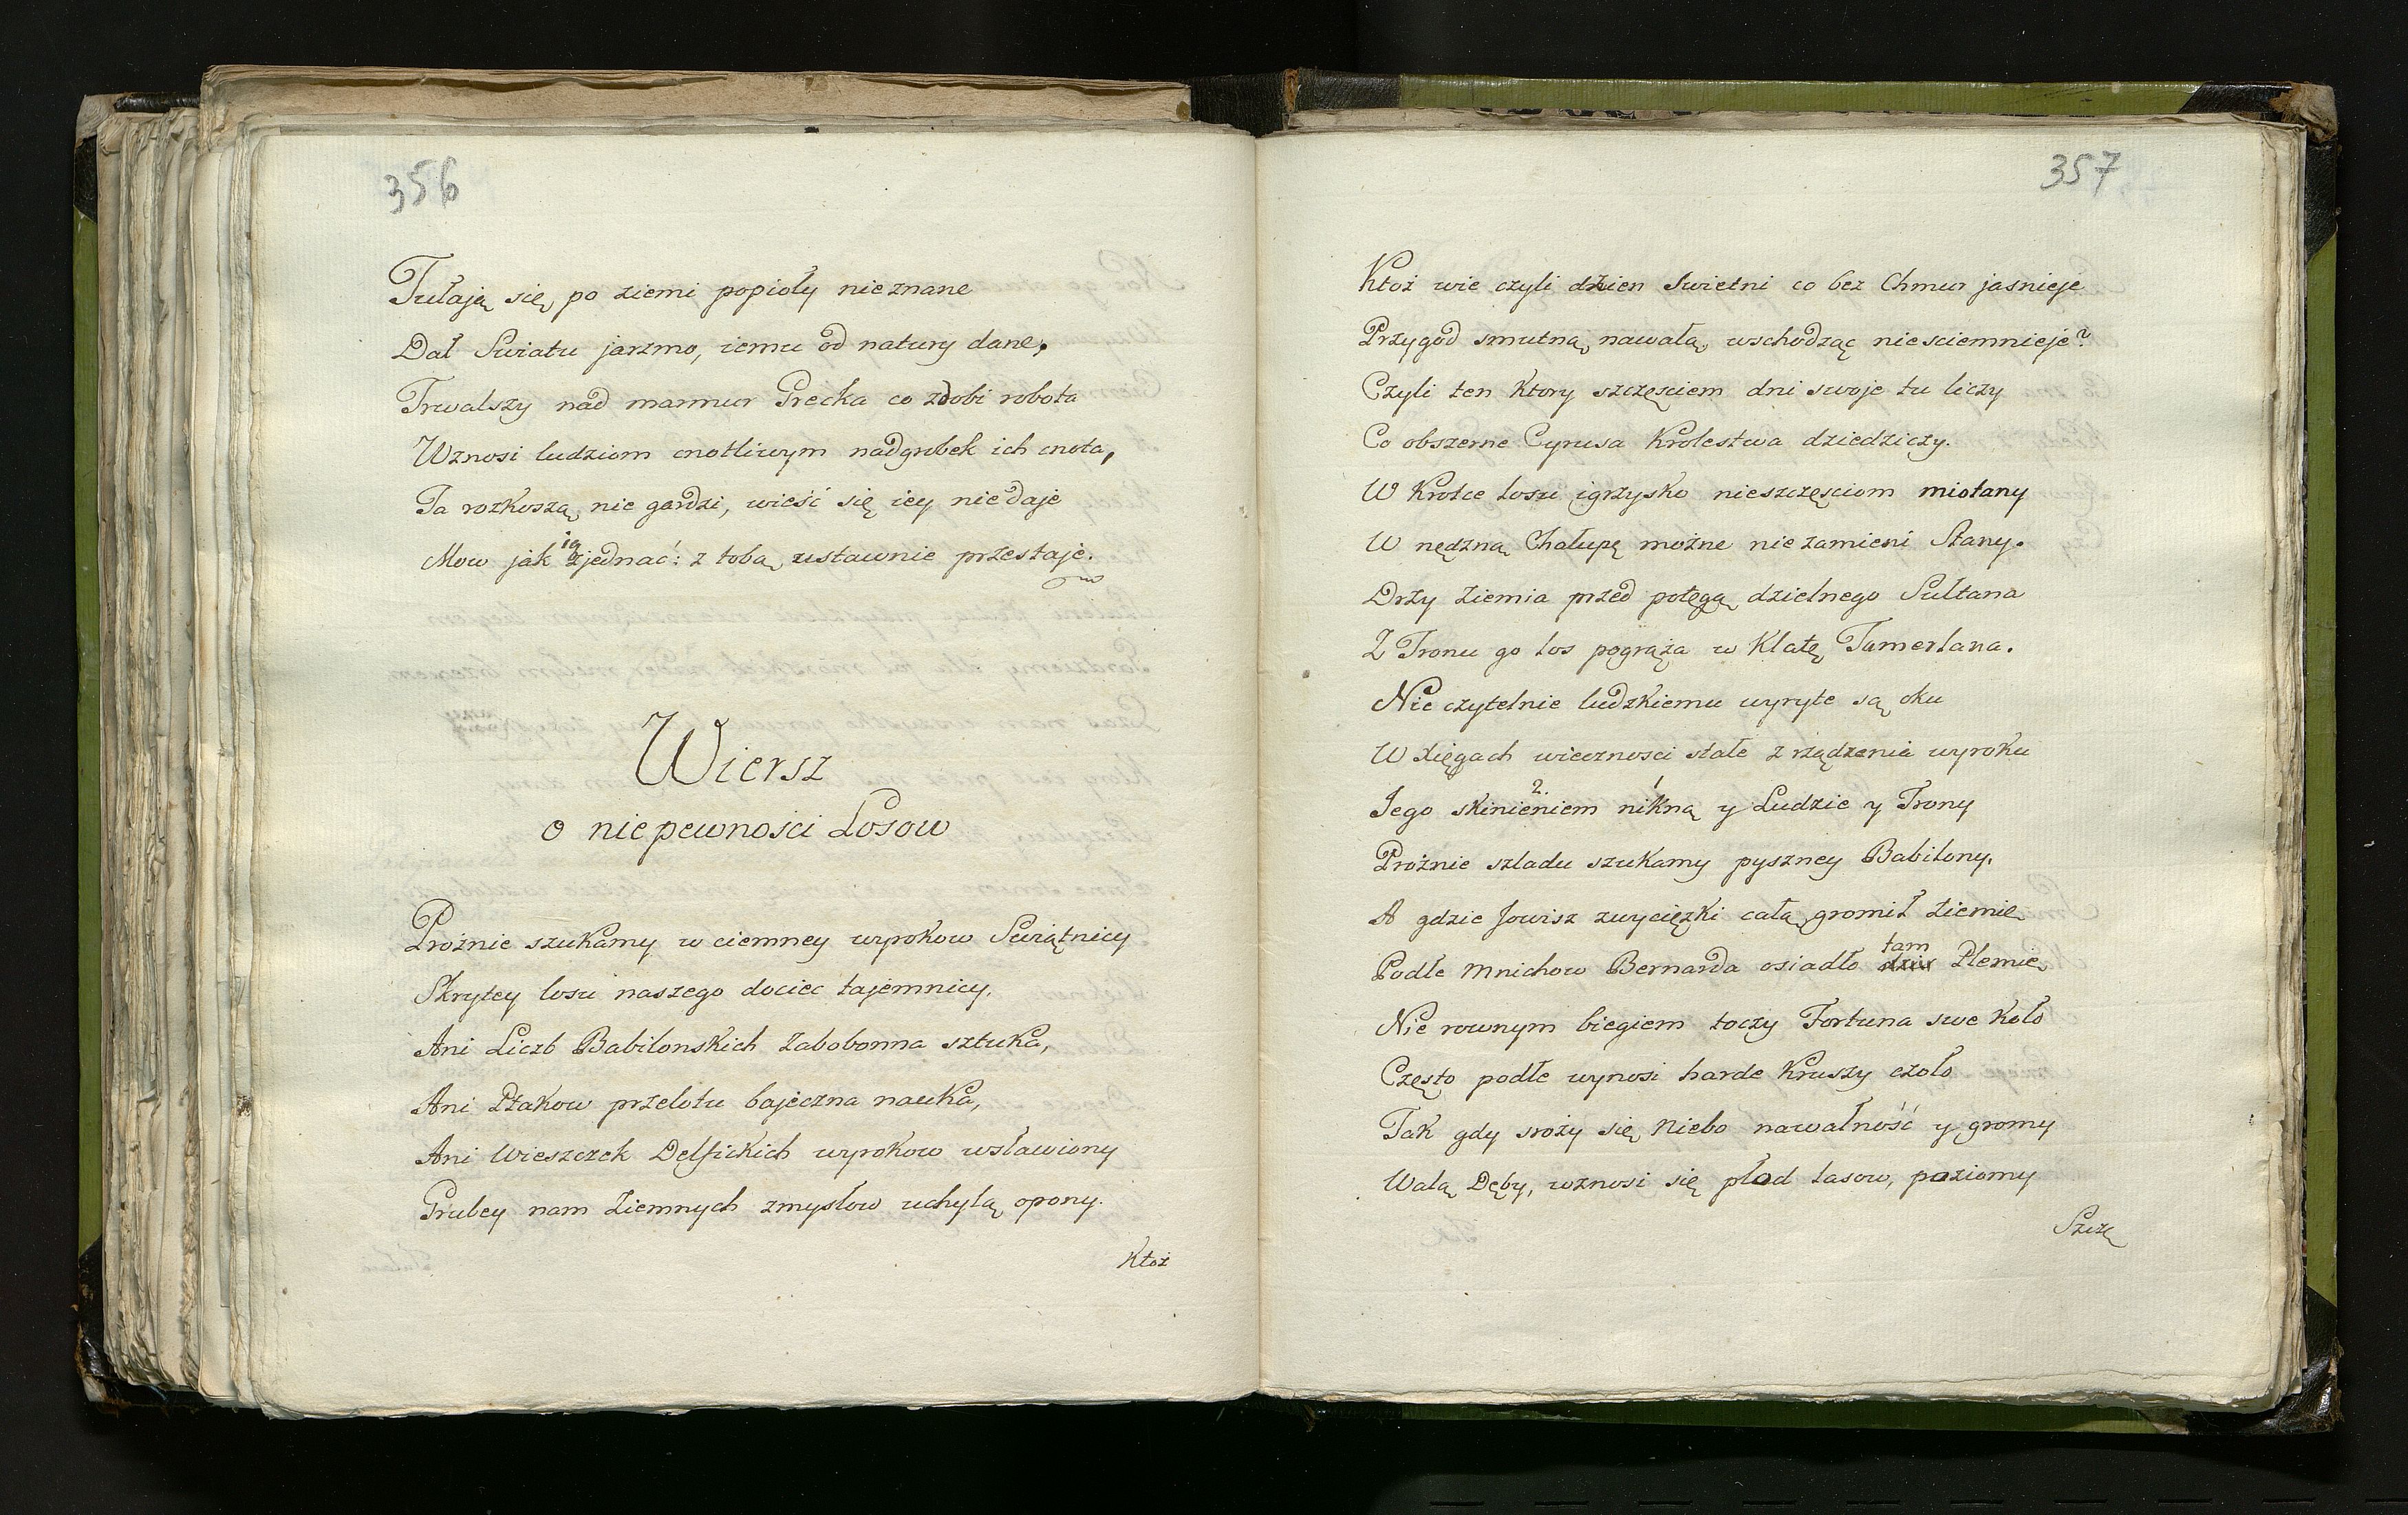 356
Tułają się po ziemi popioły nieznane
Dał Swiatu jarzmo, iemu od natury dane,
Trwalszy nad marmur Grecka co zdobi robota
Wznosi ludziom cnotliwym nadgrobek ich cnota,
Ta rozkoszą nie gardzi, wieść się iey niedaje
Mow jak ią zjednać: z tobą ustawnie przestaje.
Wiersz
o niepewnosci Losow
Prożnie szukamy w ciemney wyrokow Swiątnicy
Skrytey losu naszego dociec tajemnicy.
Ani Liczb Babilonskich zabobonna sztuka,
Ani Ptakow przelotu bajeczna nauka,
Ani Wieszczek Delfickich wyrokow wsławiony
Grubey nam Ziemnych zmysłow uchylą opony.
Ktoż
357
Ktoż wie czyli dzien Swietni co bez Chmur jasnieje
Przygod smutną nawałą wschodząc nie sciemnieje?
Czyli ten Ktory szczęsciem dni swoje tu liczy
Co obszerne Cyrusa Krolestwa dziedziczy.
W Krotce losu igrzysko nieszczęsciom miotany
W nędzną Chałupę możne nie zamieni Stany.
Drży Ziemia przed potęgą dzielnego Sułtana
Z Tronu go los pogrąża w Klatę Tamerlana.
Nie czytelnie ludzkiemu wyryte są oku
W xięgach wiecznosci stałe z rządzenia wyroku
2. 1
Jego skinieniem nikną y Ludzie y Trony
Prożnie szladu szukamy pyszney Babilony.
A gdzie Jowisz zwycięzki całą gromił ziemię
tam
Podłe Mnichow Bernarda osiadło dziś Plemię
Nie rownym biegiem toczy Fortuna swe Koło
Często podłe wynosi harde Kruszy czoło
Tak gdy sroży się Niebo nawałność y gromy
Walą Dęby, wznosi się płod lasow, poziomy
Szczę